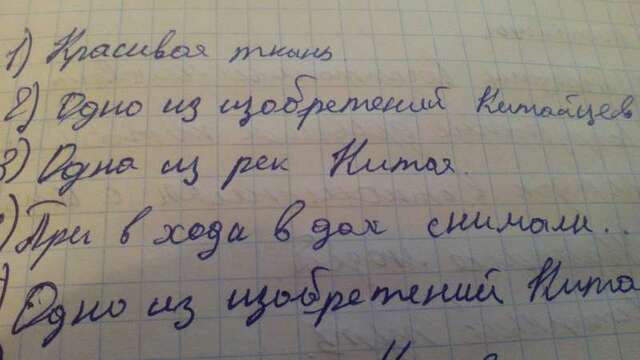 1) Красивая ткань
2) Одно из изобретений Китайцев
3) Одна из рек Китая.
) При в хода в дах снимали..
) Одно из изобретений Кита